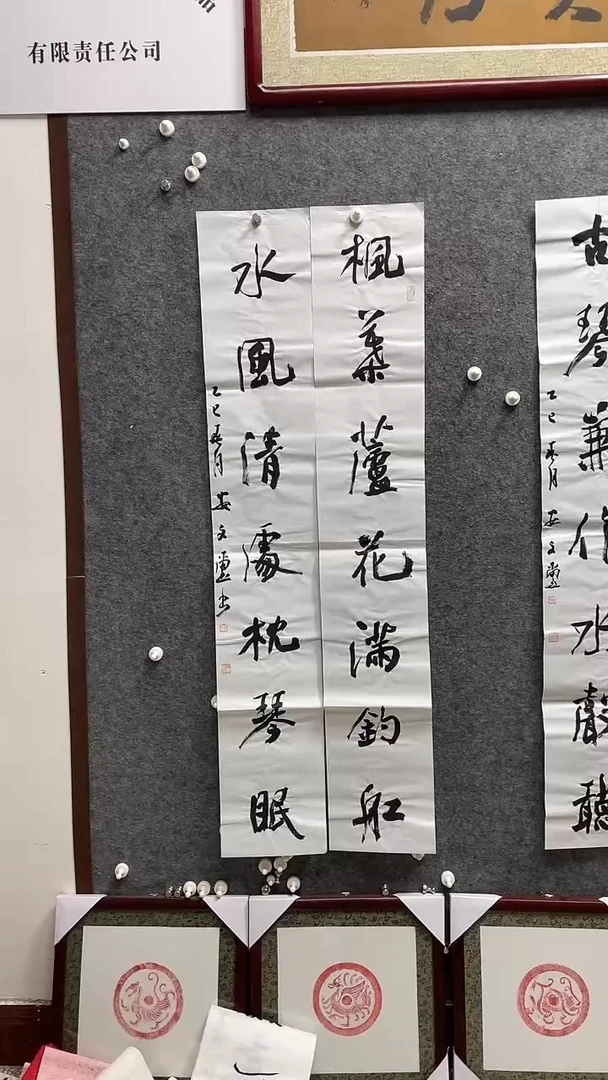 有限责任公司
楓葉蘆花滿釣舡
水風清處枕琴眠
乙巳春月
古琴兼作水聲聽
乙巳春月